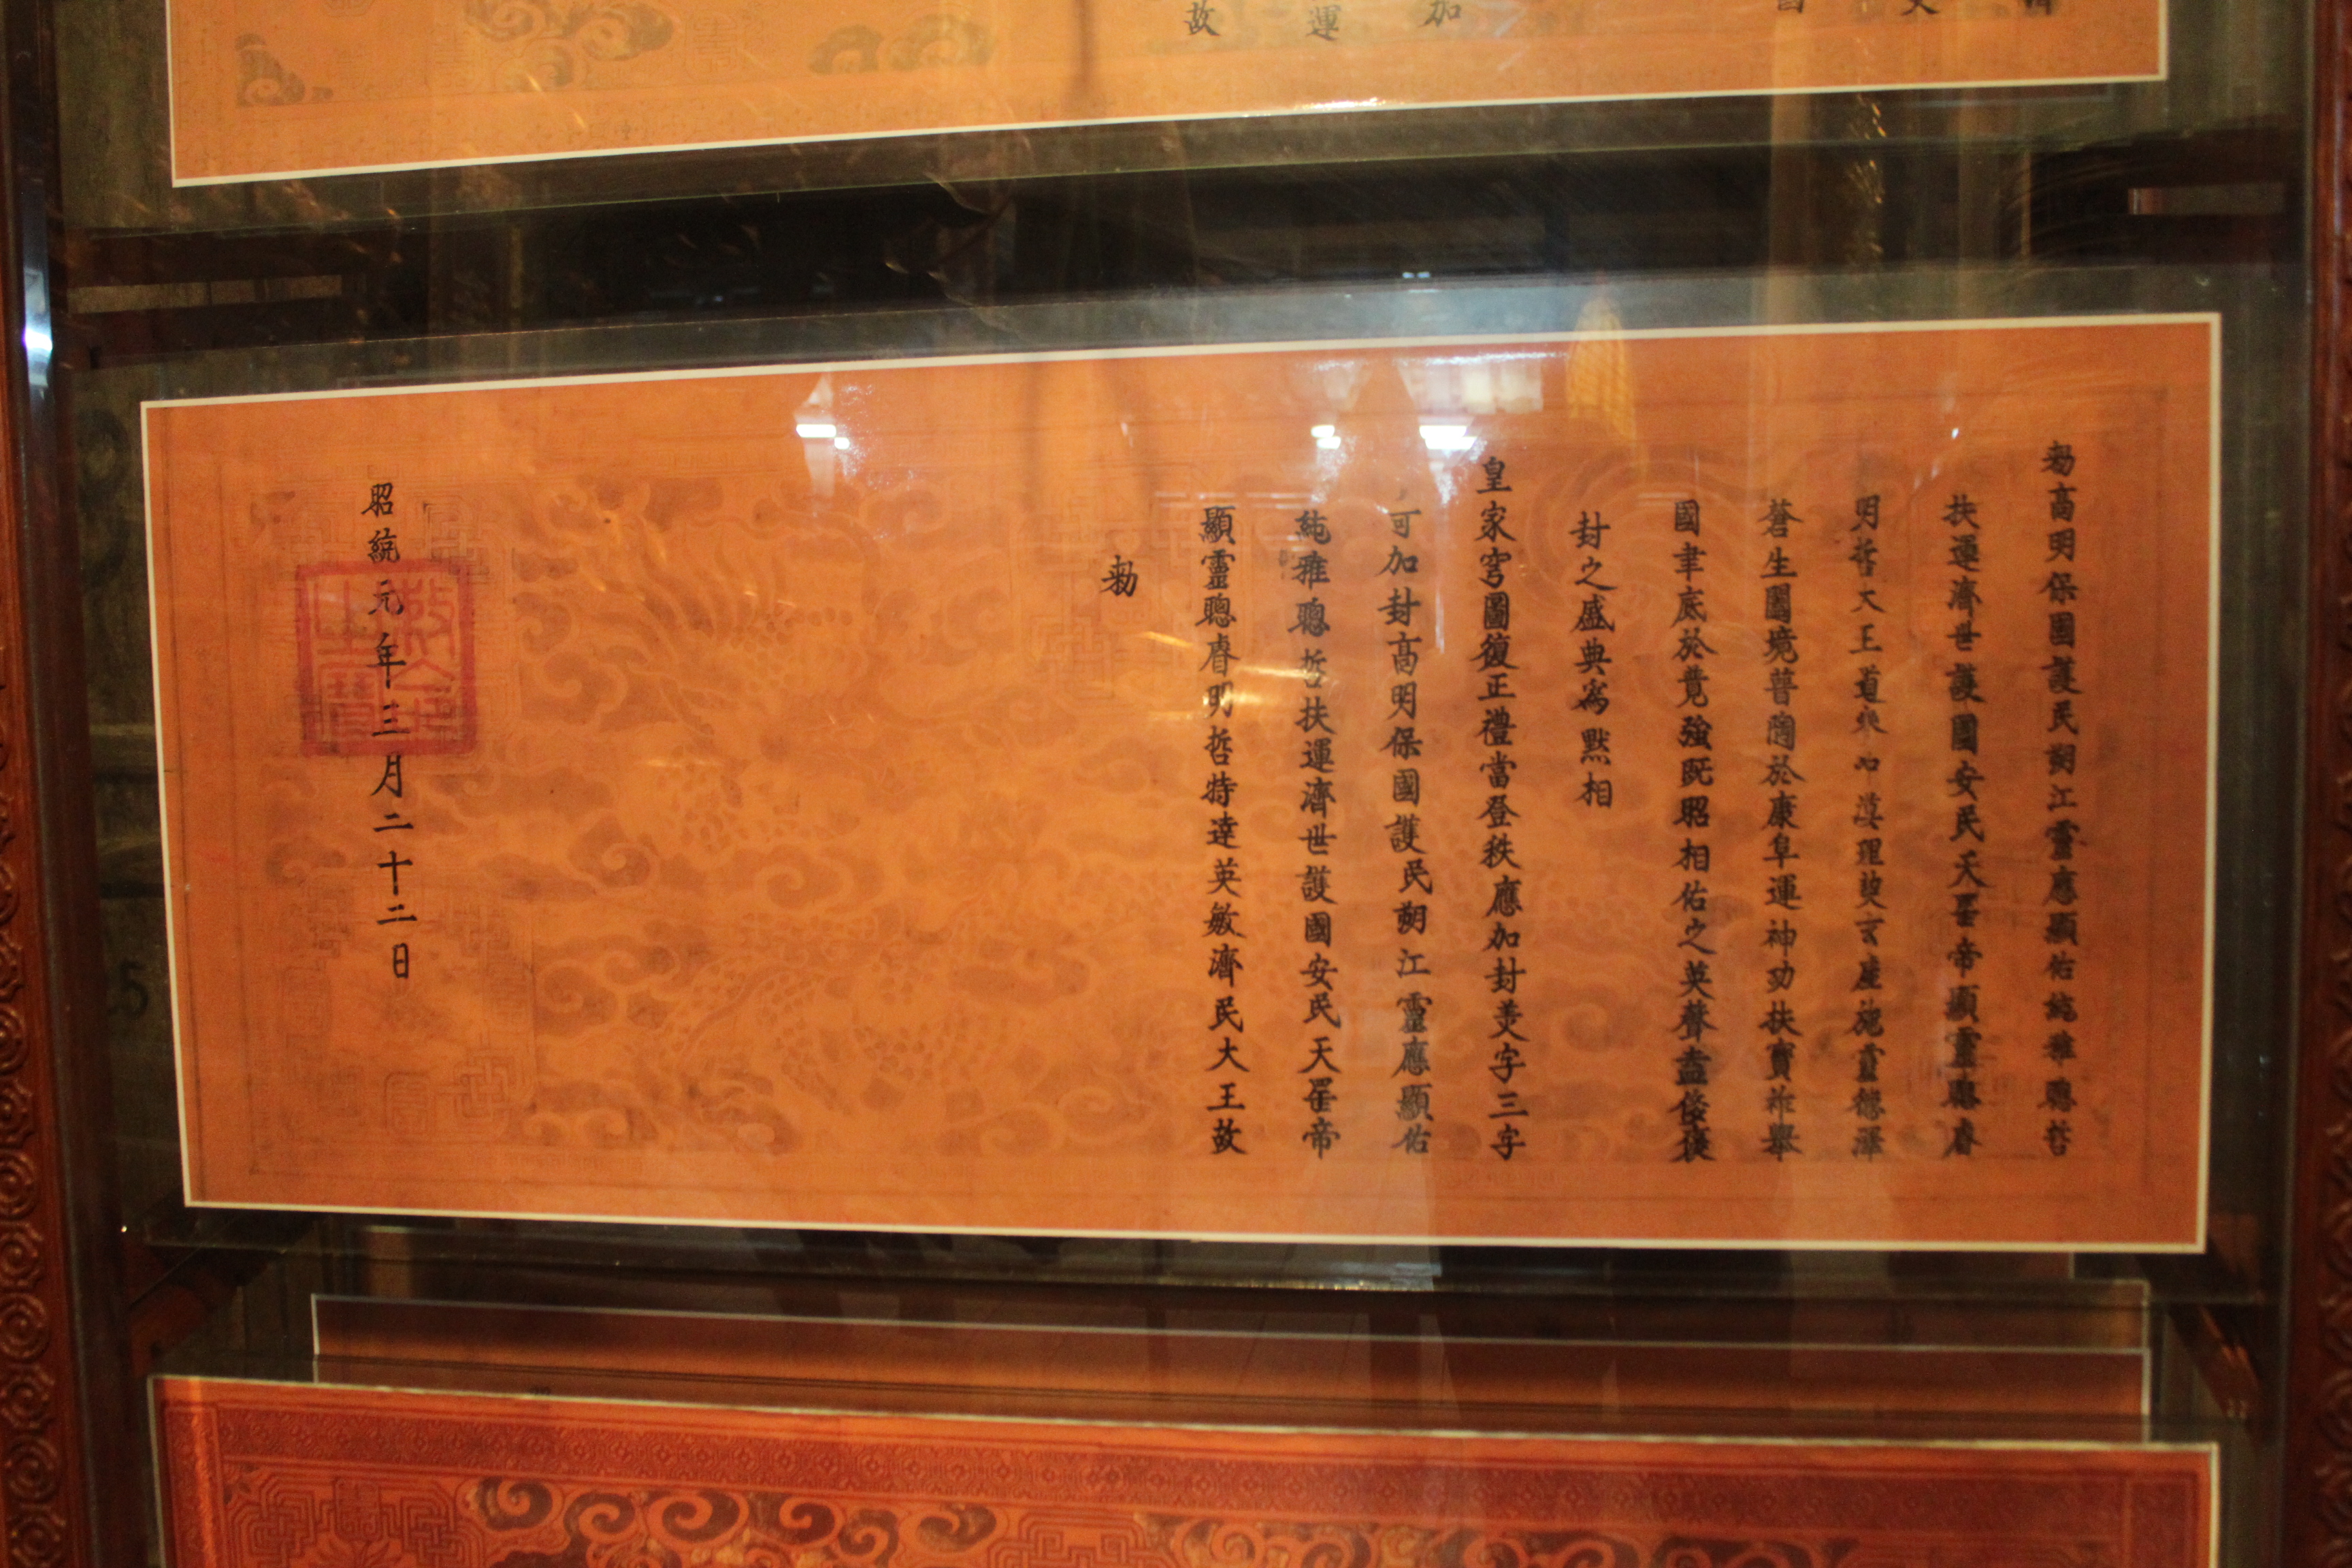 故
運
加
勅高明保國護民朔江靈應顯佑純雅聰哲
扶運濟世護國安民天𤯔帝顯靈聰睿
明哲大王道乘心漠理契玄虛施靈德澤
蒼生闔境普囿於康阜運神功扶寶祚舉
國聿底於莫强既昭相佑之英聲盍俻褒
封之盛典爲默相
皇家穹圖復正禮當登秩應加封美字三字
可加封高明保國護民朔江靈應顯佑
純雅聰哲扶運濟世護國安民天𤯔帝
顯靈聰睿明哲特達英敏濟民大王故
勅
昭統元年三月二十二日
敕命之寶